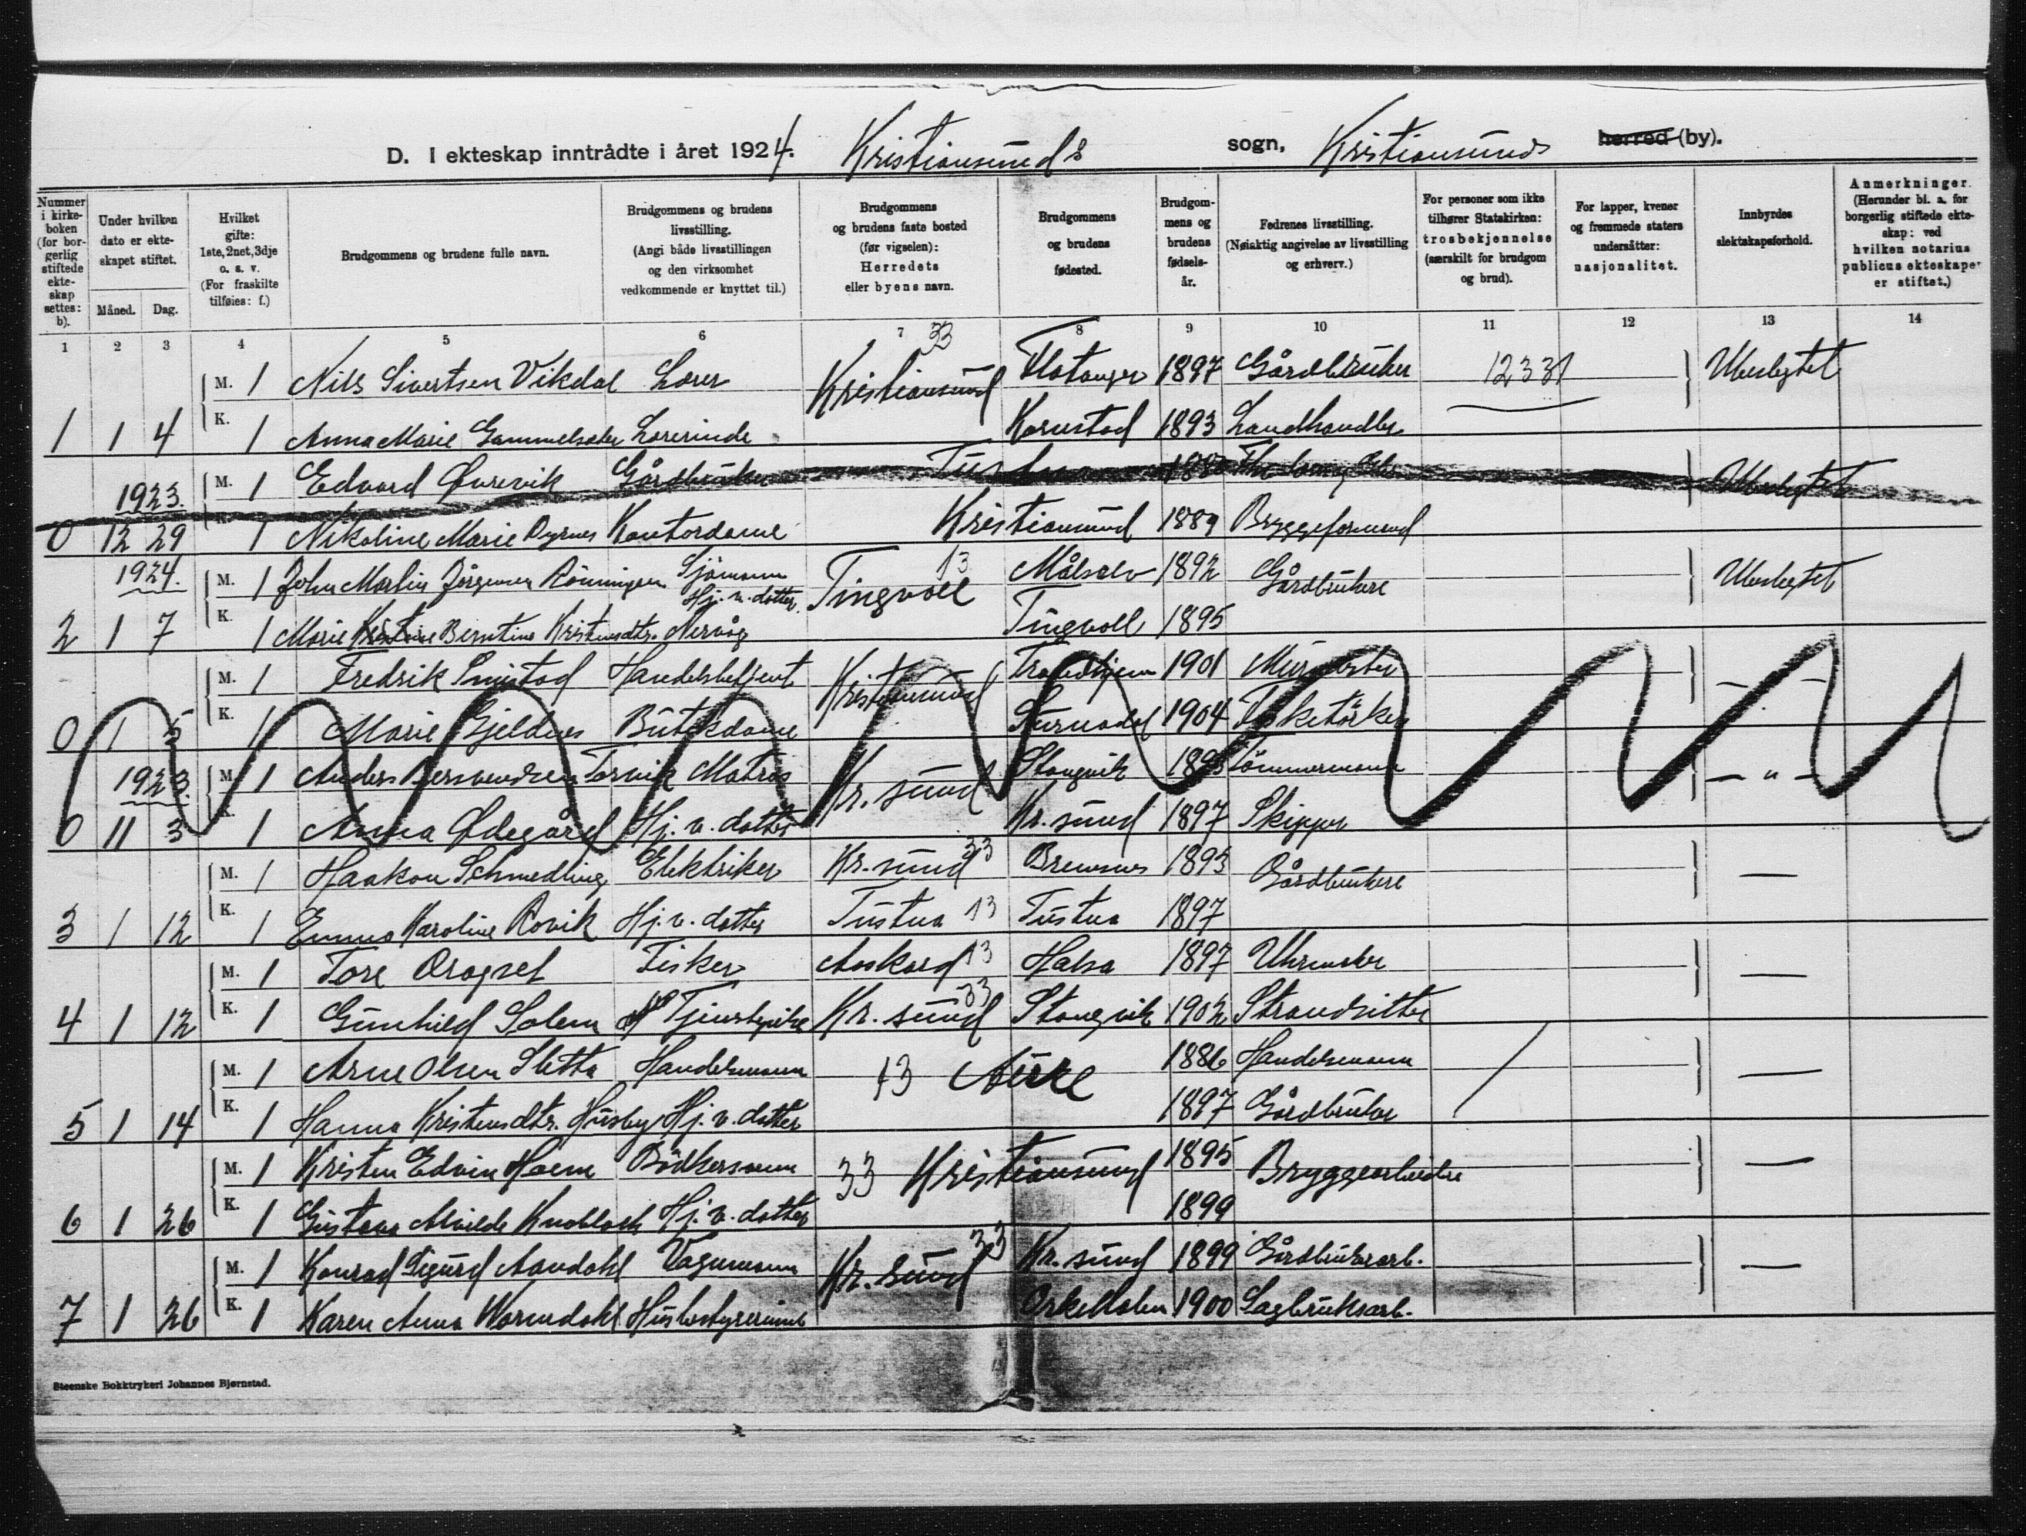 D. I ekteskap inntrådte i året 1924. Kristiansunds sogn, Kristiansunds herred (by).
Nummer i kirkeboken (for borgerlig stiftede ekteskap settes: b).
Under hvilken dato er ekteskapet stiftet.
Måned. Dag.
Hvilket gifte: 1ste, 2net, 3dje o. s. v. (For fraskilte tilføies: f.)
Brudgommens og brudens fulle navn.
Brudgommens og brudens livsstilling. (Angi både livsstillingen og den virksomhet vedkommende er knyttet til.)
Brudgommens og brudens faste bosted (før vigselen): Herredets eller byens navn.
Brudgommens og brudens fødested.
Brudgommens og brudens fødselsår.
Fedrenes livsstilling. (Nøiaktig angivelse av livsstilling og erhverv.)
For personer som ikke tilhører Statskirken: trosbekjennelse (særskilt for brudgom og brud).
For lapper, kvener og fremmede staters undersåtter: nasjonalitet.
Innbyrdes slektskapsforhold.
Anmerkninger. (Herunder bl. a. for borgerlig stiftede ekteskap: ved hvilken notarius publicus ekteskapet er stiftet.)
1 2 3 4 5 6 7 8 9 10 11 12 13 14
33
M. 1 Nils Sivertsen Vikdal Lærer Kristiansund Flatanger 1897 Gårdbruker 12331 Ubeslegtet
1 1 4 K. 1 Anna Marie Gammelsæter Lærerinde Kornstad 1893 Landhandler
1923. M. 1 Edvard Øvrevik Gårdbruker Ubeslegtet
0 12 29 K. 1 Nikoline Marie Dyrnes Kontordame Kristiansund 1889 Bryggeformend
1924. M. 1 John Martin Jørgensen Rønningen Sjømann Tingvoll 13 Målselv 1892 Gårdbrukere Ubeslegtet
2 1 7 K. 1 Marie Kristine Berntine Kristensdtr. Nervåg Hj. v. datter. Tingvoll 1895
M. 1 Fredrik Smistad Handelsbetjent Kristiansund Trondhjem 1901 Murmester — " —
0 1 5 K. 1 Marie Gjeldnes Butikdame Surnadal 1904 Fisketørker
1923. M. 1 Anders Torvik Matros Kr. sund Stangvik Tømmermann — " —
0 11 3 K. 1 Anna Ødegård Hj. v. datter Kr. sund 1897 Skipper
M. 1 Haakon Schmedling Elektriker Kr. sund 33 Bremsnes 1893 Gårdbrukere —
3 1 12 K. 1 Emma Karoline Rovik Hj. v. datter Tustna 13 Tustna 1897
M. 1 Tore Dragset Fisker Aaskard 13 Halsa 1897 Uhrmaker —
4 1 12 K. 1 Gunhild Solem Tjenestepike Kr. sund 33 Stangvik 1902 Strandsitter
M. 1 Arne Olsen Sletta Handelsmann 13 Aure 1886 Handelsmann —
5 1 14 K. 1 Hanna Kristensdtr. Husby Hj. v. datter 1897 Gårdbruker
M. 1 Kristen Edvin Hoem Bødkersvenn 33 Kristiansund 1895 Bryggearbeidere —
6 1 26 K. 1 Gustava Alvilde Knobloch Hj. v. datter 1899
M. 1 Konrad Sigurd Aandahl Vognmann Kr. sund 33 Kr. sund 1899 Gårdbrukerarb. —
7 1 26 K. 1 Karen Anna Wormdahl Husbestyrerinne Orkedalen 1900 Sagbruksarb.
Steenske Bokktrykeri Johannes Bjørnstad.